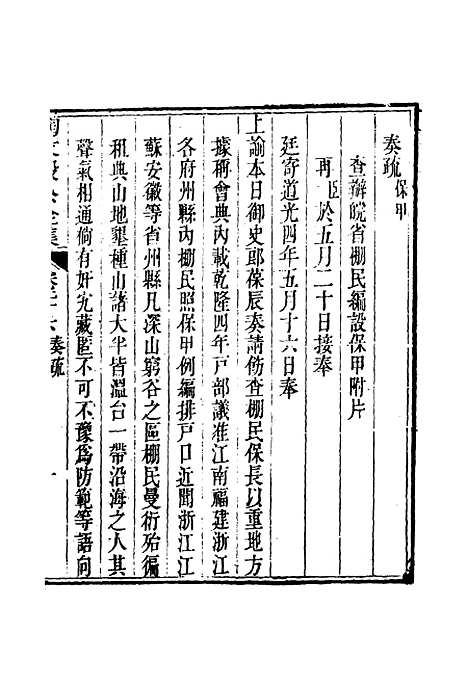 奏疏 保甲
查辦皖省棚民編設保甲附片
再臣於五月二十日接奉
廷寄道光四年五月十六日奉
上諭本日御史郎葆辰奏請飭查棚民保長以重地方
據稱會典內載乾隆四年戶部議准江南福建浙江
各府州縣內棚民照保甲例編排戶口近聞浙江江
蘇安徽等省州縣凡深山窮谷之區棚民曼衍殆徧
租典山地墾種山諸大半皆溫台一帶沿海之人其
聲氣相通倘有奸宄藏匿不可不豫為防範等語向
陶文毅公全集 卷二十六 奏疏 一